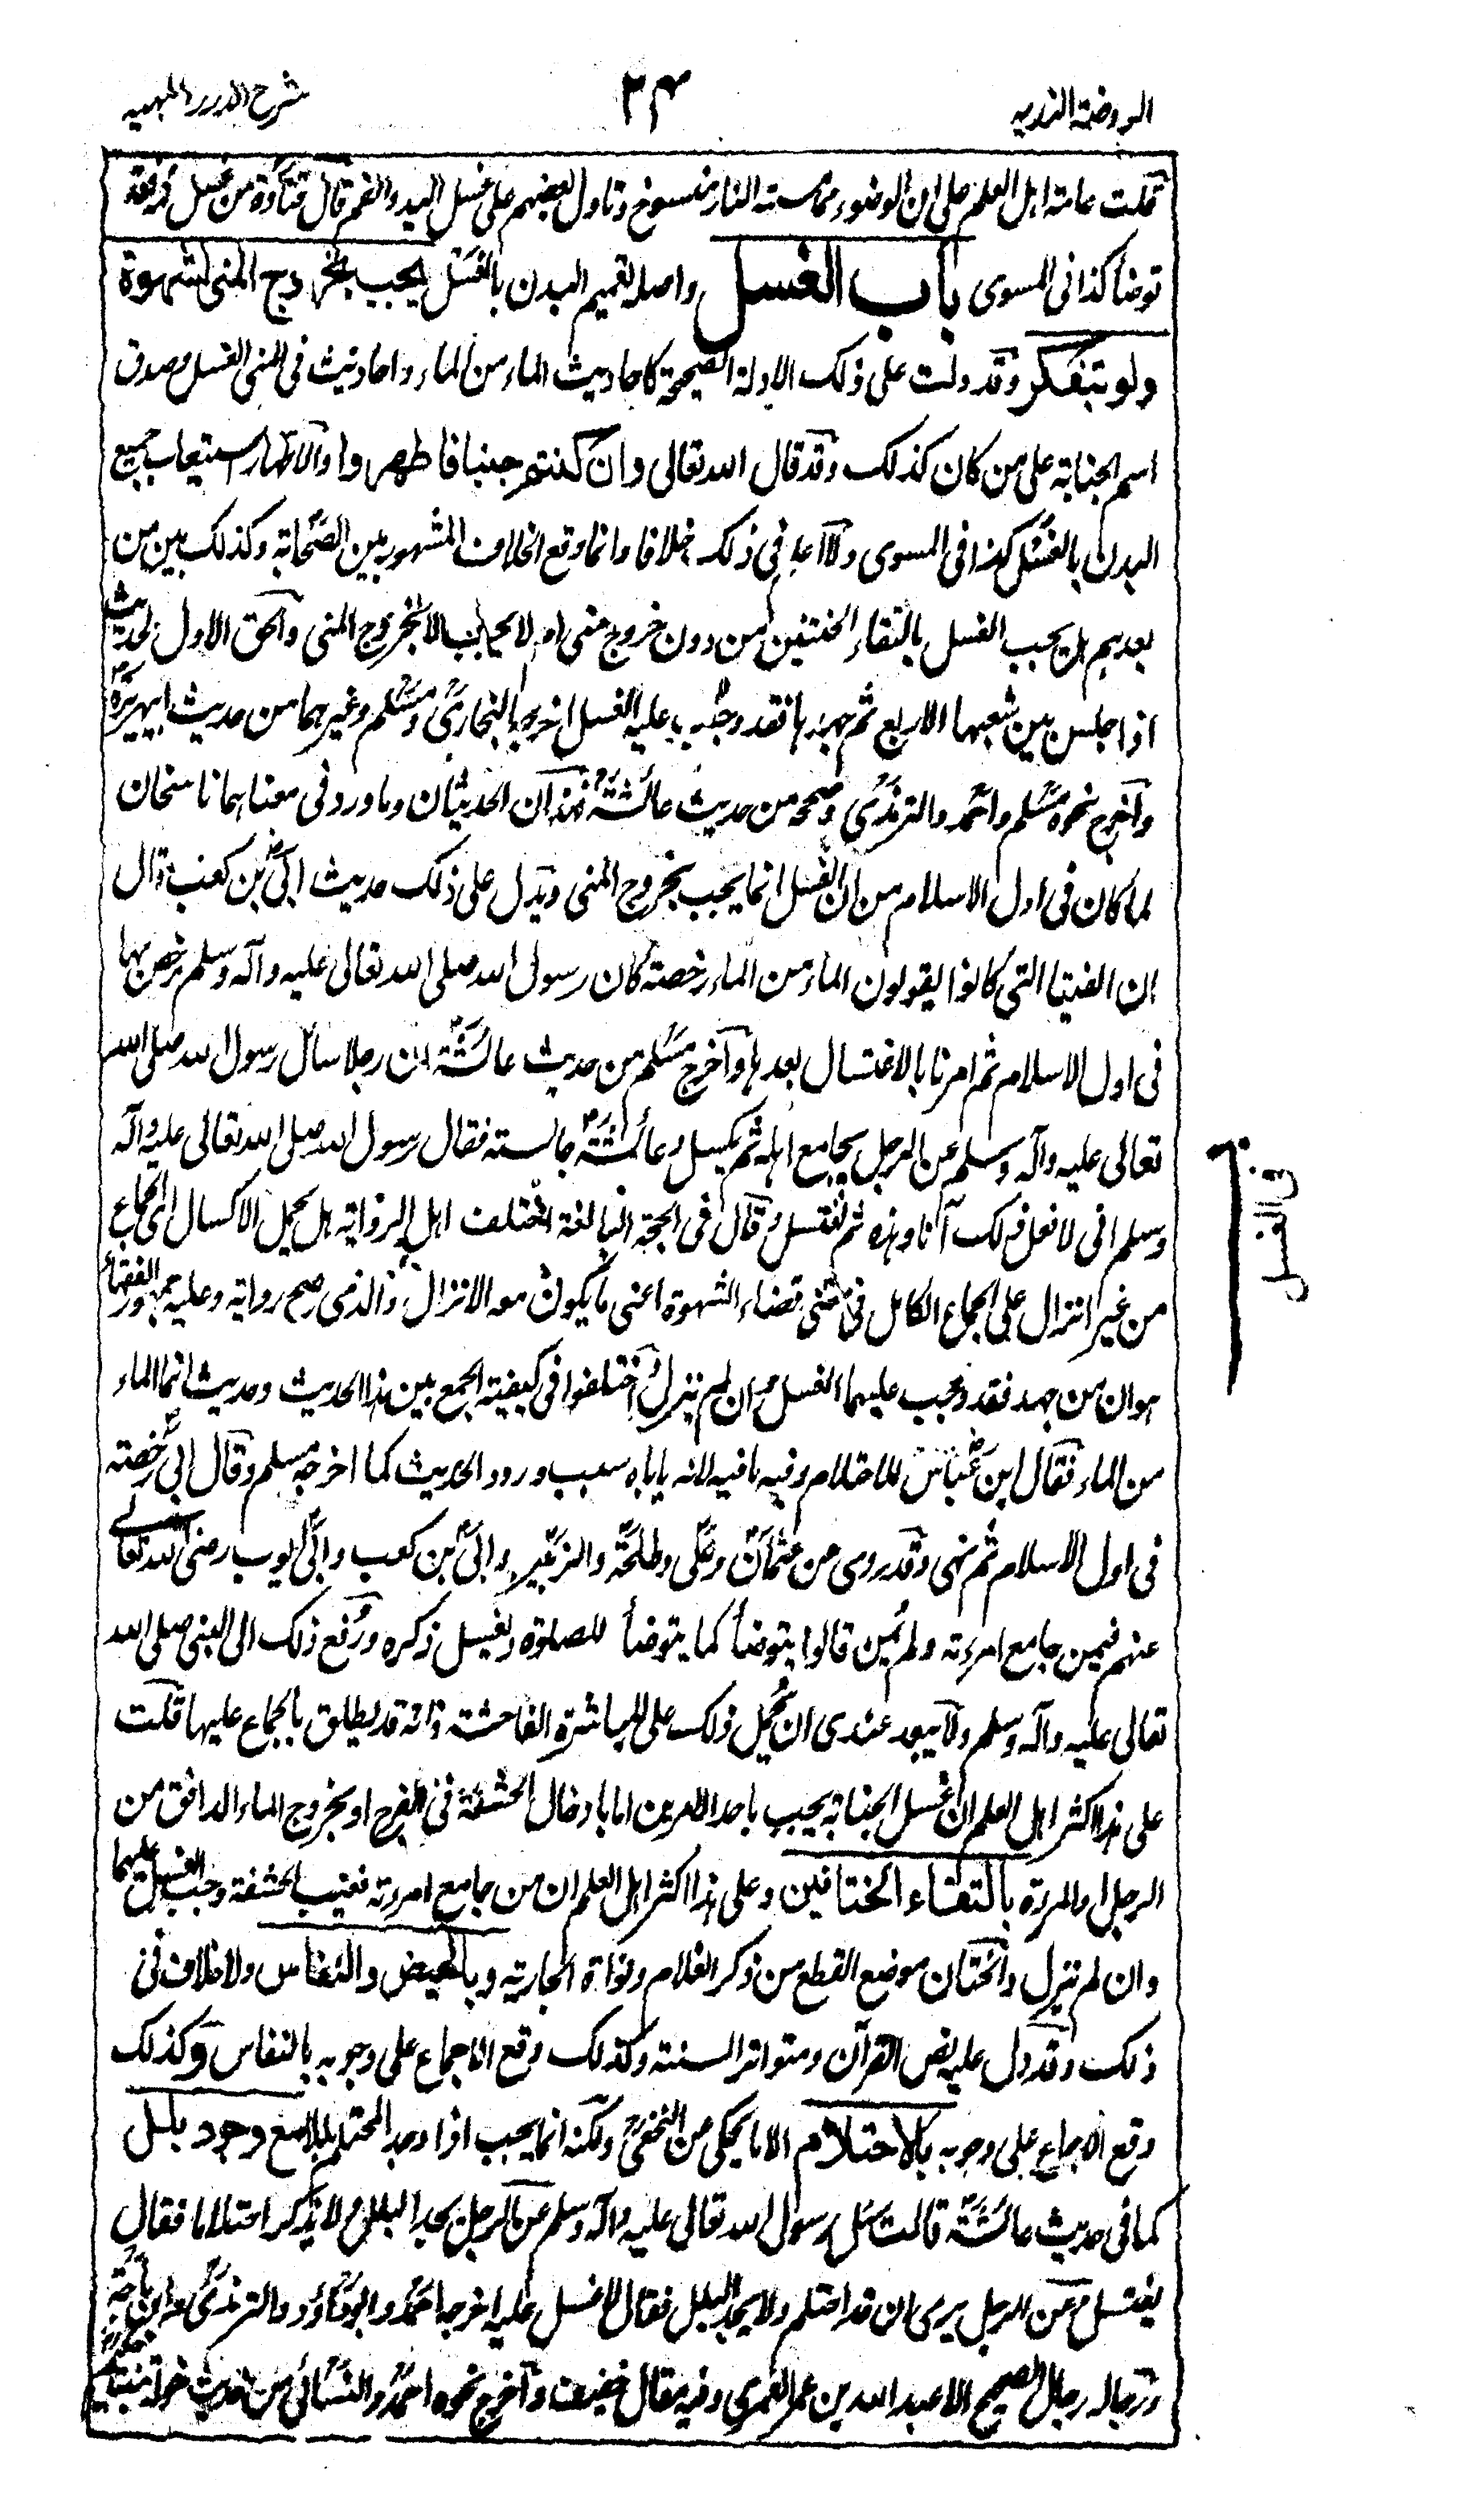 الروضة الندية
٣٤
شرح الدرر البهية
قلت عامة اهل العلم على ان الوضوء مما مسته النار منسوخ وتاول بعضهم على غسل اليد والفم قال قتادة من غسل فمه فقد
توضأ كذا فى المسوى باب الغسل واصله تعميم البدن بالغسل يجب بخروج المنى لشهوة
ولو بتفكر وقد دلت على ذلك الادلة الصحيحة كاحاديث الماء من الماء واحاديث فى المنى الغسل وصدق
اسم الجنابة على من كان كذلك وقد قال الله تعالى وان كنتم جنبا فاطهروا والاطهار استيعاب جميع
البدن بالغسل كذا فى المسوى ولا اعلم فى ذلك خلافا وانما وقع الخلاف المشهور بين الصحابة وكذلك بين من
بعدهم هل يجب الغسل بالتقاء الختانين من دون خروج منى ام لا يجب الا بخروج المنى والحق الاول لحديث
اذا جلس بين شعبها الاربع ثم جهدها فقد وجب عليه الغسل اخرجه البخارى ومسلم وغيرهما من حديث ابى هريرة
واخرج نحوه مسلم واحمد والترمذى وصححه من حديث عائشة فهذان الحديثان وما ورد فى معناهما ناسخان
لما كان فى اول الاسلام من ان الغسل انما يجب بخروج المنى ويدل على ذلك حديث ابى بن كعب قال
ان الفتيا التى كانوا يقولون الماء من الماء رخصة كان رسول الله صلى الله تعالى عليه وآله وسلم رخص بها
فى اول الاسلام ثم امرنا بالاغتسال بعدها واخرج مسلم من حديث عائشة ان رجلا سأل رسول الله صلى الله
تعالى عليه وآله وسلم عن الرجل يجامع اهله ثم يكسل وعائشة جالسة فقال رسول الله صلى الله تعالى عليه وآله
وسلم انى لافعل ذلك انا وهذه ثم نغتسل قال فى الحجة البالغة اختلف اهل الرواية هل يحمل الاكسال اى الجماع
من غير انزال على الجماع الكامل فى معنى قضاء الشهوة اعنى ما يكون معه الانزال والذى صح رواية وعليه جمهور الفقهاء
هو ان من جهد فقد وجب عليهما الغسل وان لم ينزل واختلفوا فى كيفية الجمع بين هذا الحديث وحديث انما الماء
من الماء فقال ابن عباس للاحتلام وفيه ما فيه لانه ياباه سبب ورود الحديث كما اخرجه مسلم وقال ابى رخصة
فى اول الاسلام ثم نهى وقد روى عن عثمان وعلى وطلحة والزبير وابى بن كعب وابى ايوب رضى الله تعالى
عنهم فيمن جامع امرءته ولم يمن قالوا يتوضأ كما يتوضأ للصلوة ويغسل ذكره ورفع ذلك الى النبى صلى الله
تعالى عليه وآله وسلم ولا يبعد عندى ان يحمل ذلك على المباشرة الفاحشة فانه قد يطلق الجماع عليها قلت
على هذا اكثر اهل العلم ان غسل الجنابة يجب باحد الامرين اما بادخال الحشفة فى الفرج او بخروج الماء الدافق من
الرجل او المرءة بالتقاء الختانين وعلى هذا اكثر اهل العلم ان من جامع امرءته فغيب الحشفة وجب الغسل عليهما
وان لم ينزل والختان موضع القطع من ذكر الغلام ونواة الجارية وبالحيض والنفاس ولا خلاف فى
ذلك وقد دل عليه نص القرآن ومتواتر السنة وكذلك وقع الاجماع على وجوبه بالنفاس وكذلك
وقع الاجماع على وجوبه بالاحتلام الا ما يحكى عن النخعى ولكنه انما يجب اذا وجد المحتلم بللا مع وجود بلل
كما فى حديث عائشة قالت سئل رسول الله تعالى عليه وآله وسلم عن الرجل يجد البلل ولا يذكر احتلاما فقال
يغتسل وعن الرجل يرى ان قد احتلم ولا يجد البلل فقال لا غسل عليه اخرجه احمد وابوداؤد والترمذى وابن ماجة
ورجاله رجال الصحيح الا عبد الله بن عمر العمرى وفيه مقال خفيف واخرج نحوه احمد والنسائى من حديث خولة بنت حكيم
فى الغسل